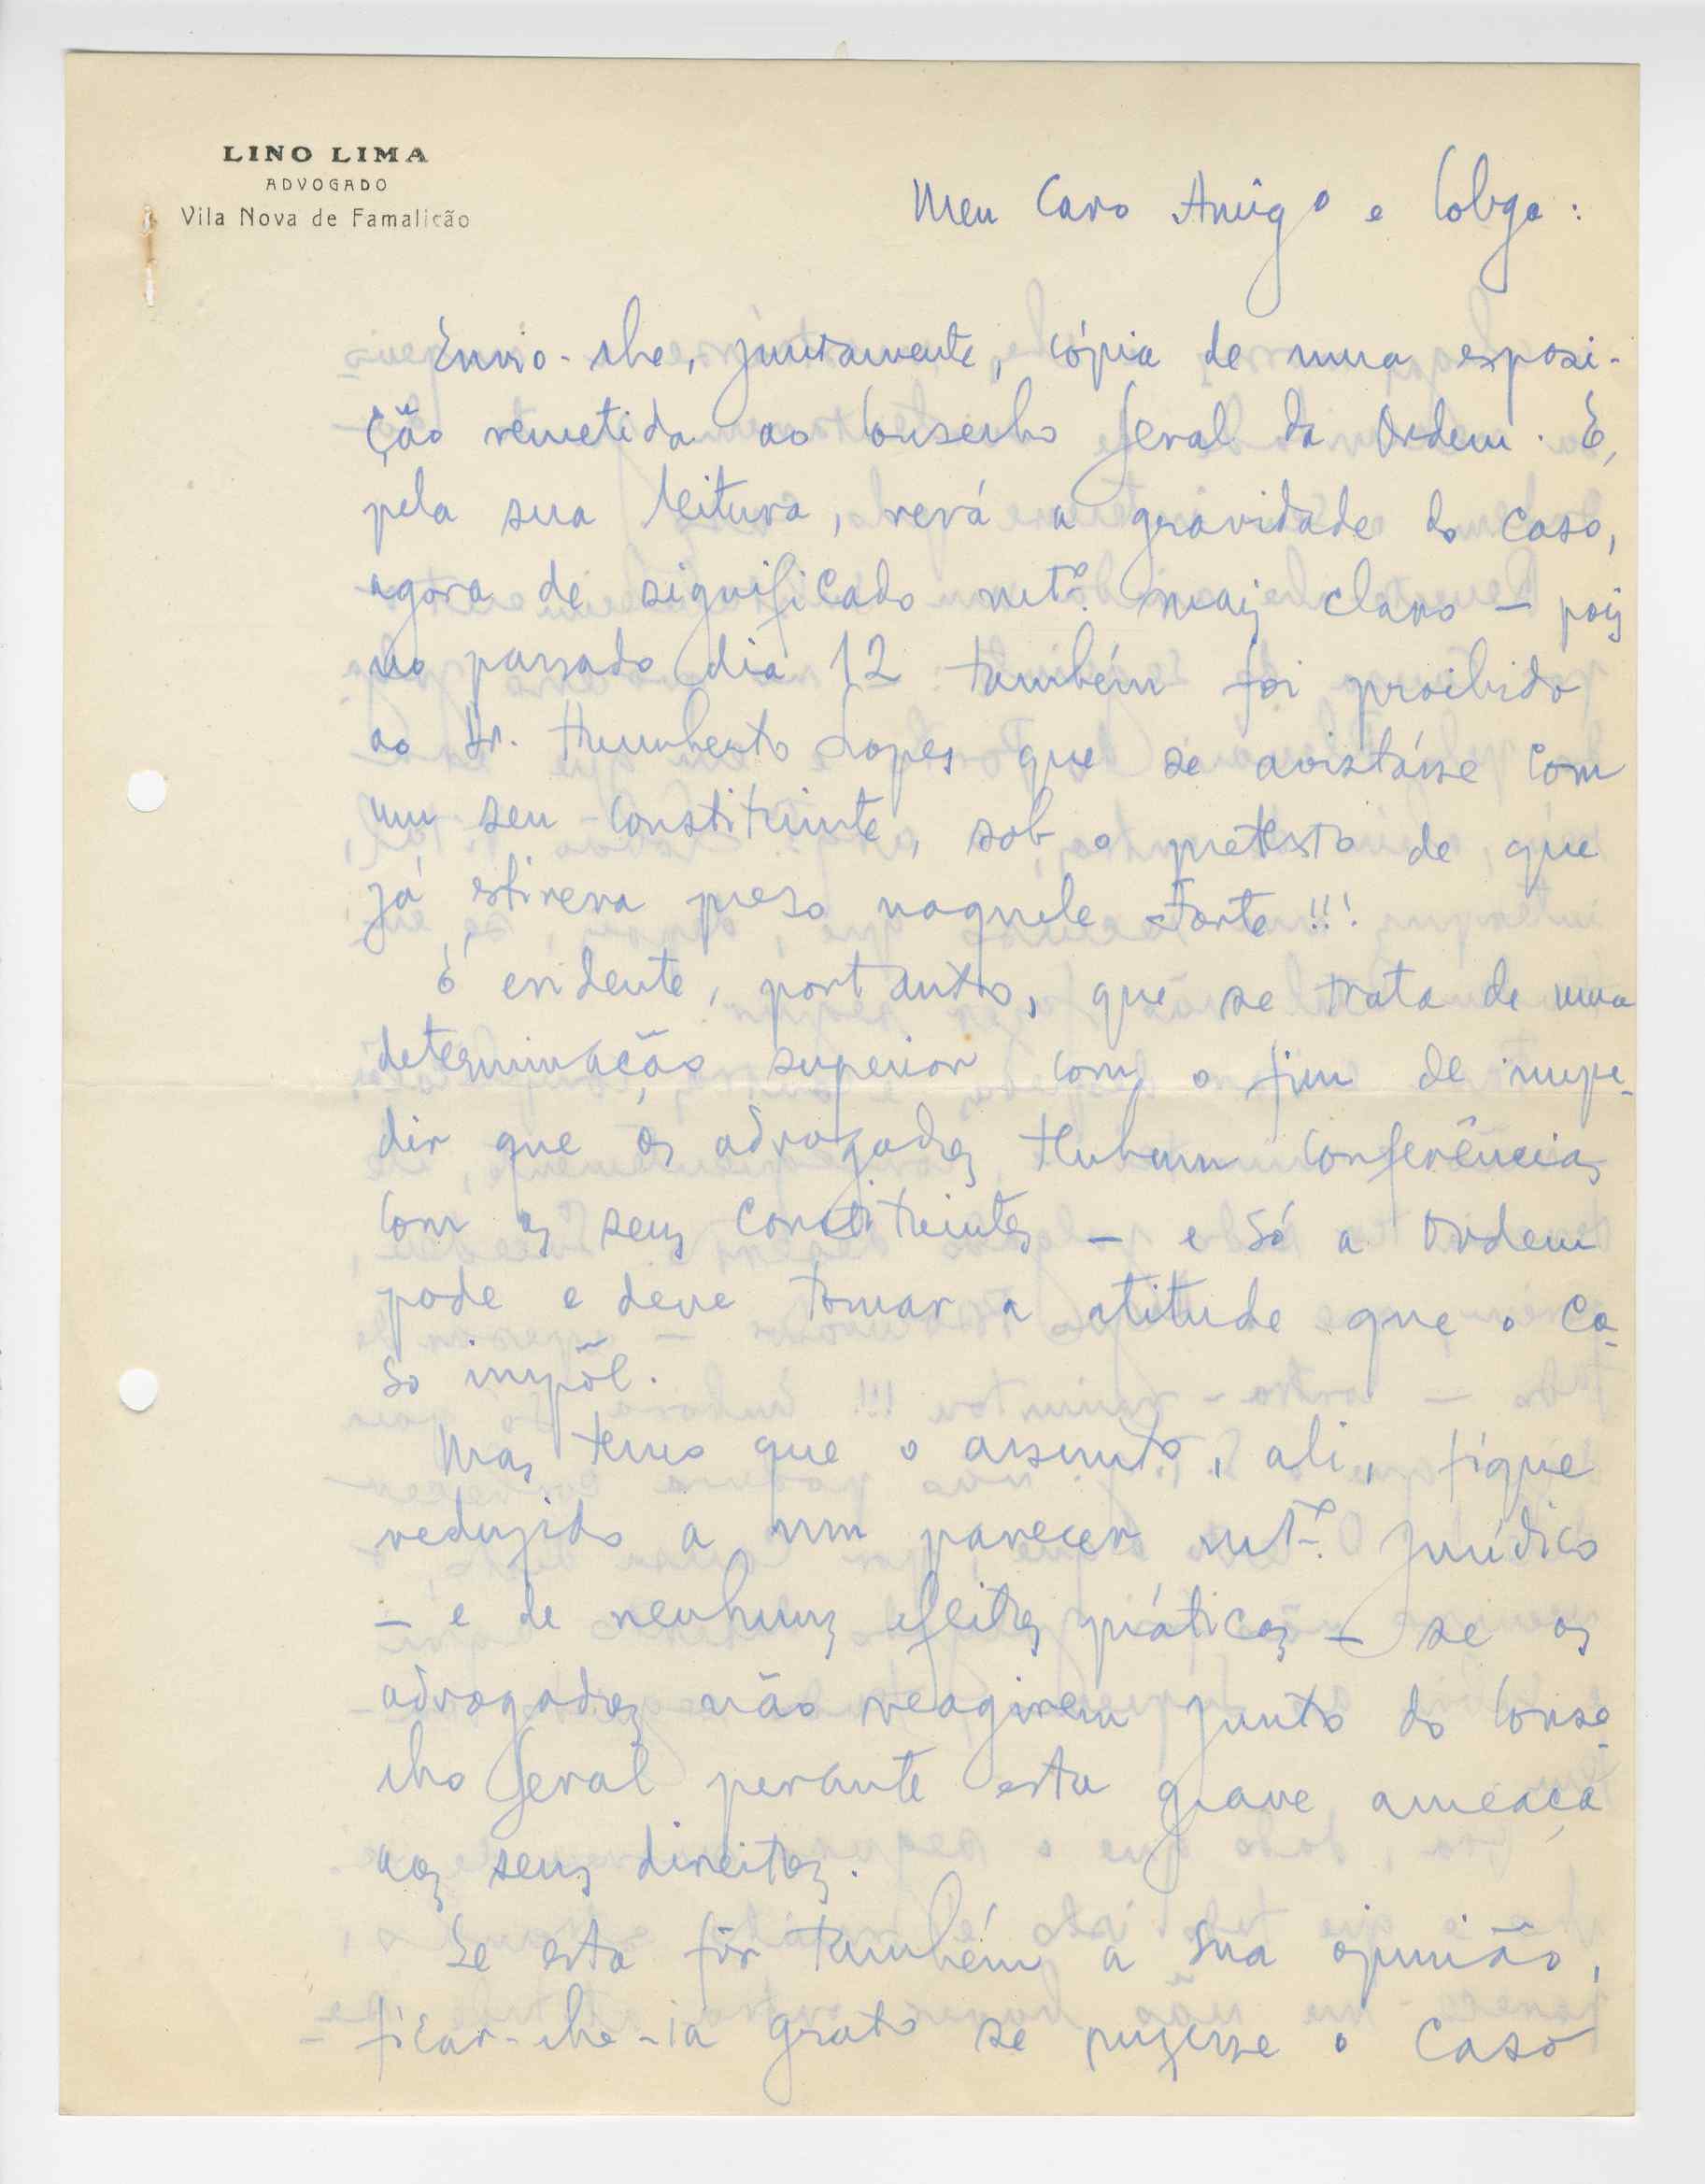 LINO LIMA
ADVOGADO
Vila Nova de Famalicão
Meu Caro Amigo e Colega:
Envio-lhe, juntamente, cópia de uma exposi-
ção remetida ao Conselho Geral da Ordem. E,
pela sua leitura, verá a gravidade do caso,
agora de significado mtº. mais claro — pois
no passado dia 12 também foi proibido
ao Dr. Humberto Lopes que se avistásse com
um seu constituinte, sob o pretexto de que
já estivera preso naquele Forte!!!
É evidente, portanto, que se trata de uma
determinação superior com o fim de impe-
dir que os advogados tenham conferências
com os seus constituintes — e só a Ordem
pode e deve tomar a atitude que o ca-
so impõe.
Mas temo que o assunto, ali, fique
reduzido a um parecer mtº. jurídico
— e de nenhuns efeitos práticos — se os
advogados não reagirem junto do Conse-
lho Geral perante esta grave ameaça
aos seus direitos.
Se esta fôr também a sua opinião,
ficar-lhe-ia grato se puzesse o caso